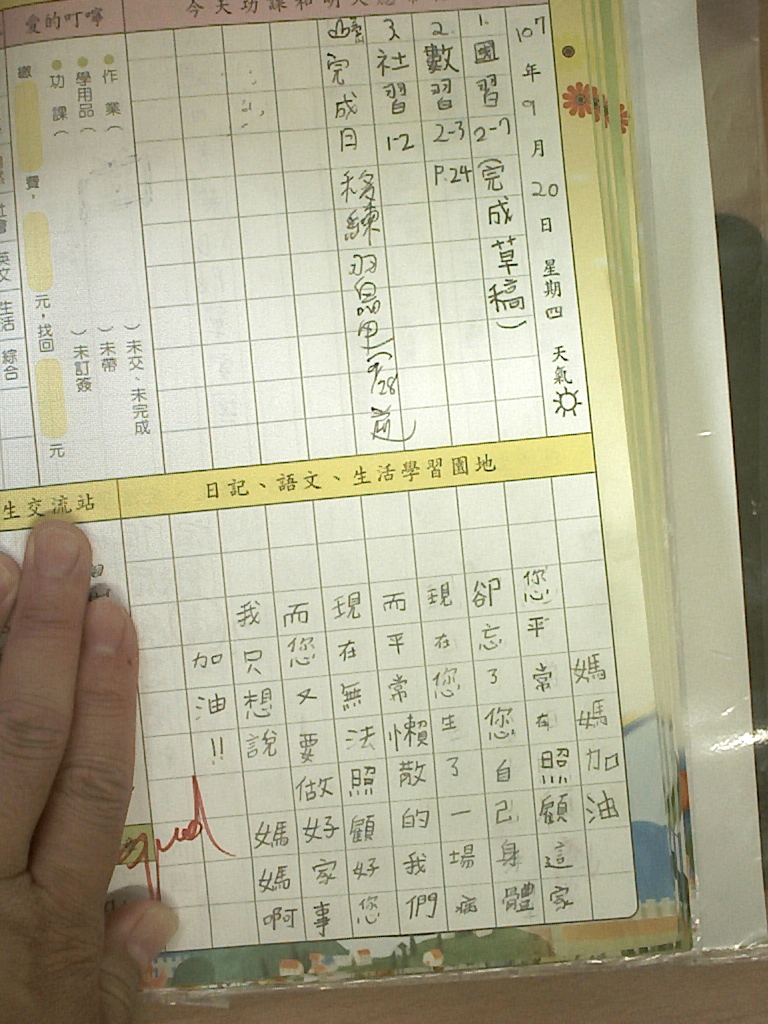 107年9月20日 星期四 天氣
1.國習2-7(完成草稿)
2.數習2-3 P.24
3.社習1-2
完成日 移練習
9/28
作業( )未交、未完成
學用品( )未帶
功課( )未訂簽
繳 費, 元,找回 元
愛的叮嚀
英文 生活 綜合
日記、語文、生活學習園地
生交流站
媽媽加油
您平常在照顧這家
卻忘了您自己身體
現在您生了一場病
而平常懶散的我們
現在無法照顧好您
而您又要做好家事
我只想說 媽媽啊
加油!!
good